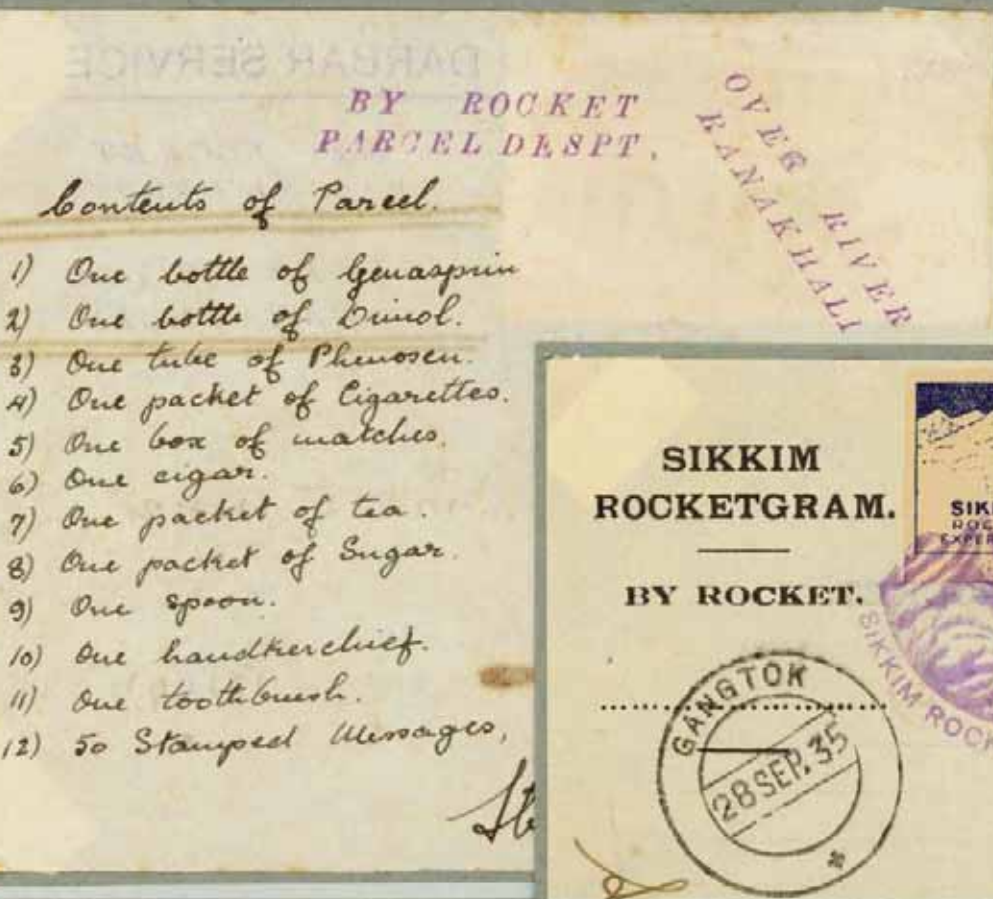 DARBAR SERVICE
BY ROCKET
PARCEL DESPT.
OVER RIVER
RANAKHALI
Contents of Parcel.
1) One bottle of Genasprin
2) One bottle of Dimol.
3) One tube of Phenosen.
4) One packet of Cigarettes.
5) One box of matches.
6) One cigar.
7) One packet of tea.
8) One packet of Sugar.
9) One spoon.
10) One handkerchief.
11) One toothbrush.
12) 50 Stamped Messages,
SIKKIM
ROCKETGRAM.
BY ROCKET.
GANGTOK
28 SEP. 35
SIK
ROC
EXPER
SIKKIM ROCK